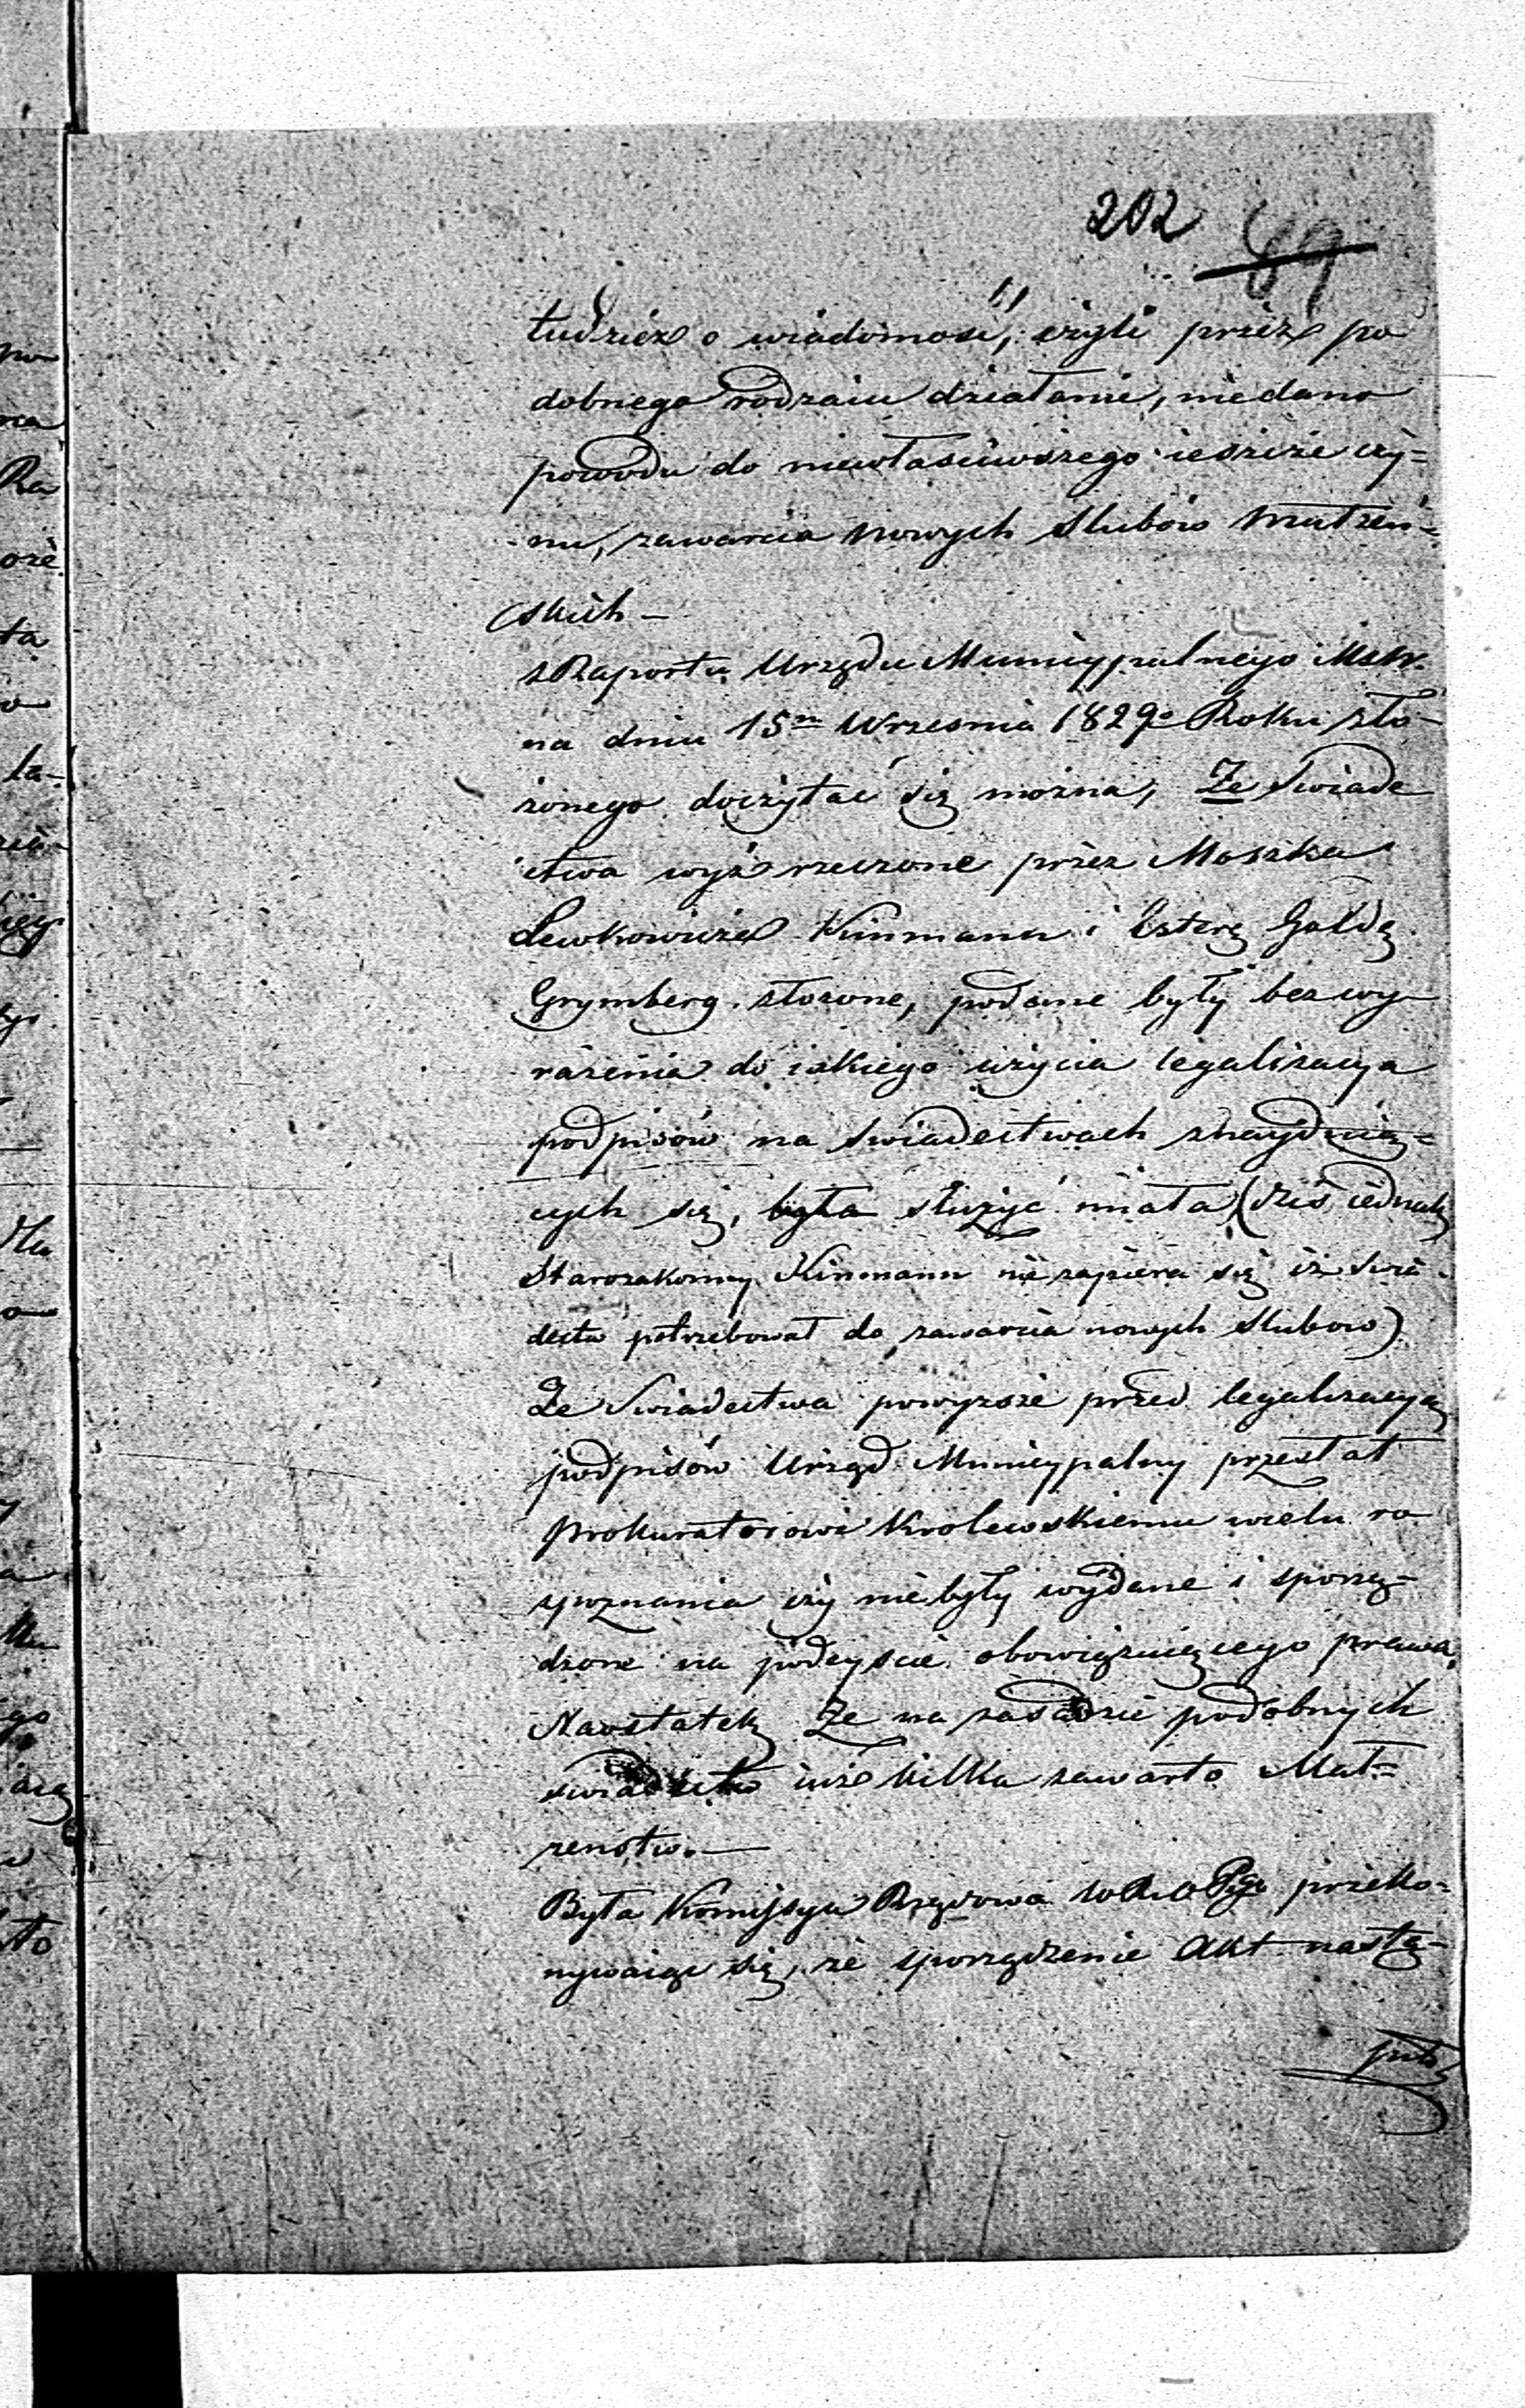 202 49
tudzież o wiadomość, czyli przez po
dobnego rodzaiu działanie, niedano
powodu do niewłaściwszego ieszcze czy=
nu, zawarcia nowych ślubów małżeń=
skich –
z Raportu Urzędu Municypalnego MstW.
na dniu 15m Września 1829o Roku zło-
żonego doczytać się można, Że Swiade
ctwa wyż rzeczone przez Moszka
Lewkowicza Kinmana i Esterę Gołdę
Grymberg złożone, podane były bez wy-
rażenia do iakiego użycia legalizacya
podpisów na świadectwach znayduią=
cych się, była służyć miała (dziś iednak
Starozakonny Kinmann niezapiera się iż świa-
dectw potrzebował do zawarcia nowych ślubow)
Ze Swiadectwa powyższe przed legalizacyą
podpisów Urząd Municypalny przesłał
Prokuratorowi Krolewskiemu w celu ro
zpoznania czy niebyły wydane i sporzą=
dzone na podeyście obowiązuiącego prawa,
Naostatek Że na zasadzie podobnych
świadectw iuż kilka zawarto Mał=
żeństw. –
Była Kommissya Rządowa przeko=
nywaiąc się, że sporządzenie Akt nastą-